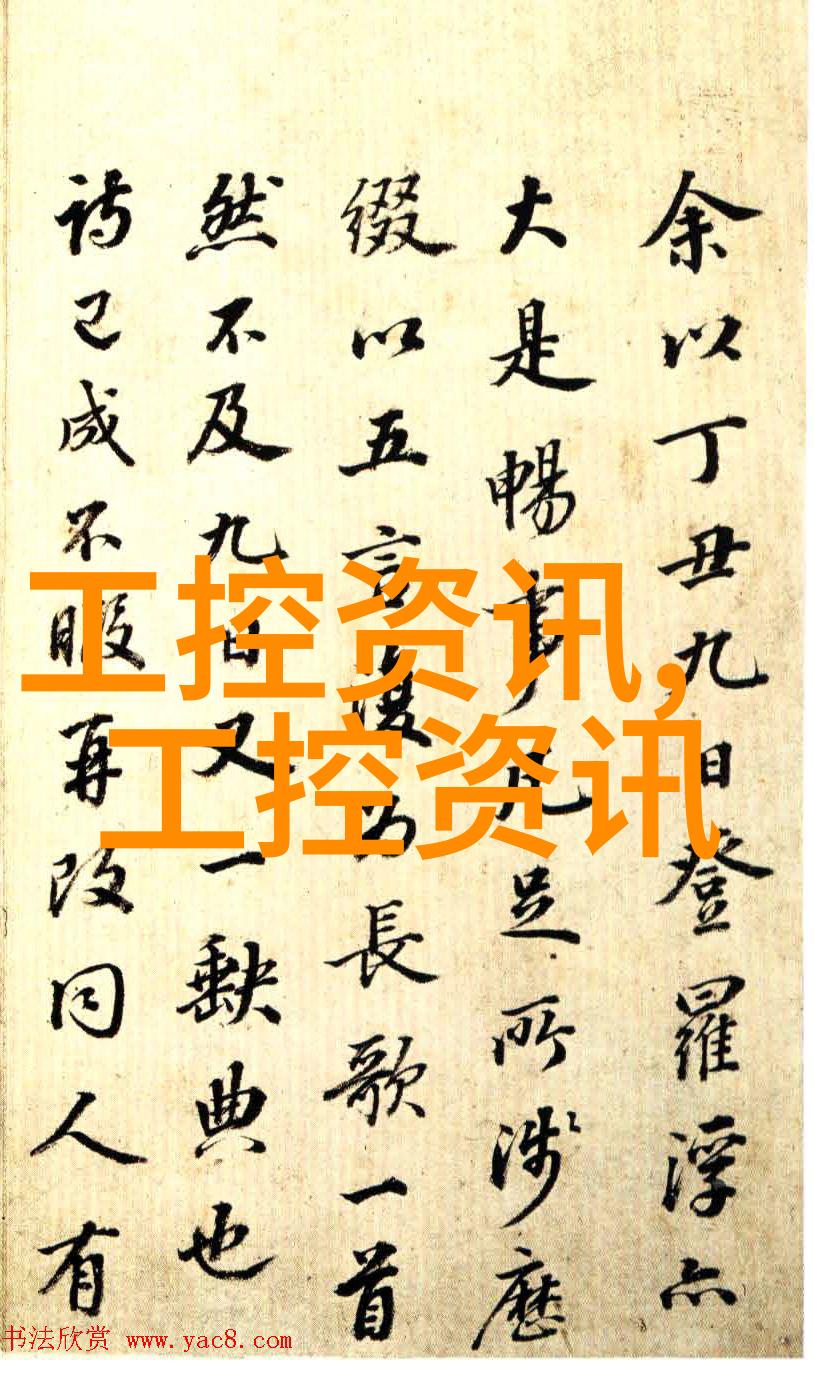 余以丁丑九日登羅浮亦
大是暢事凡足所涉歷
綴以五言復為長歌一首
然不及九日又一缺典也
詩已成不暇再改同人有
工控资讯,
工控资讯
书法欣赏 www.yac8.com